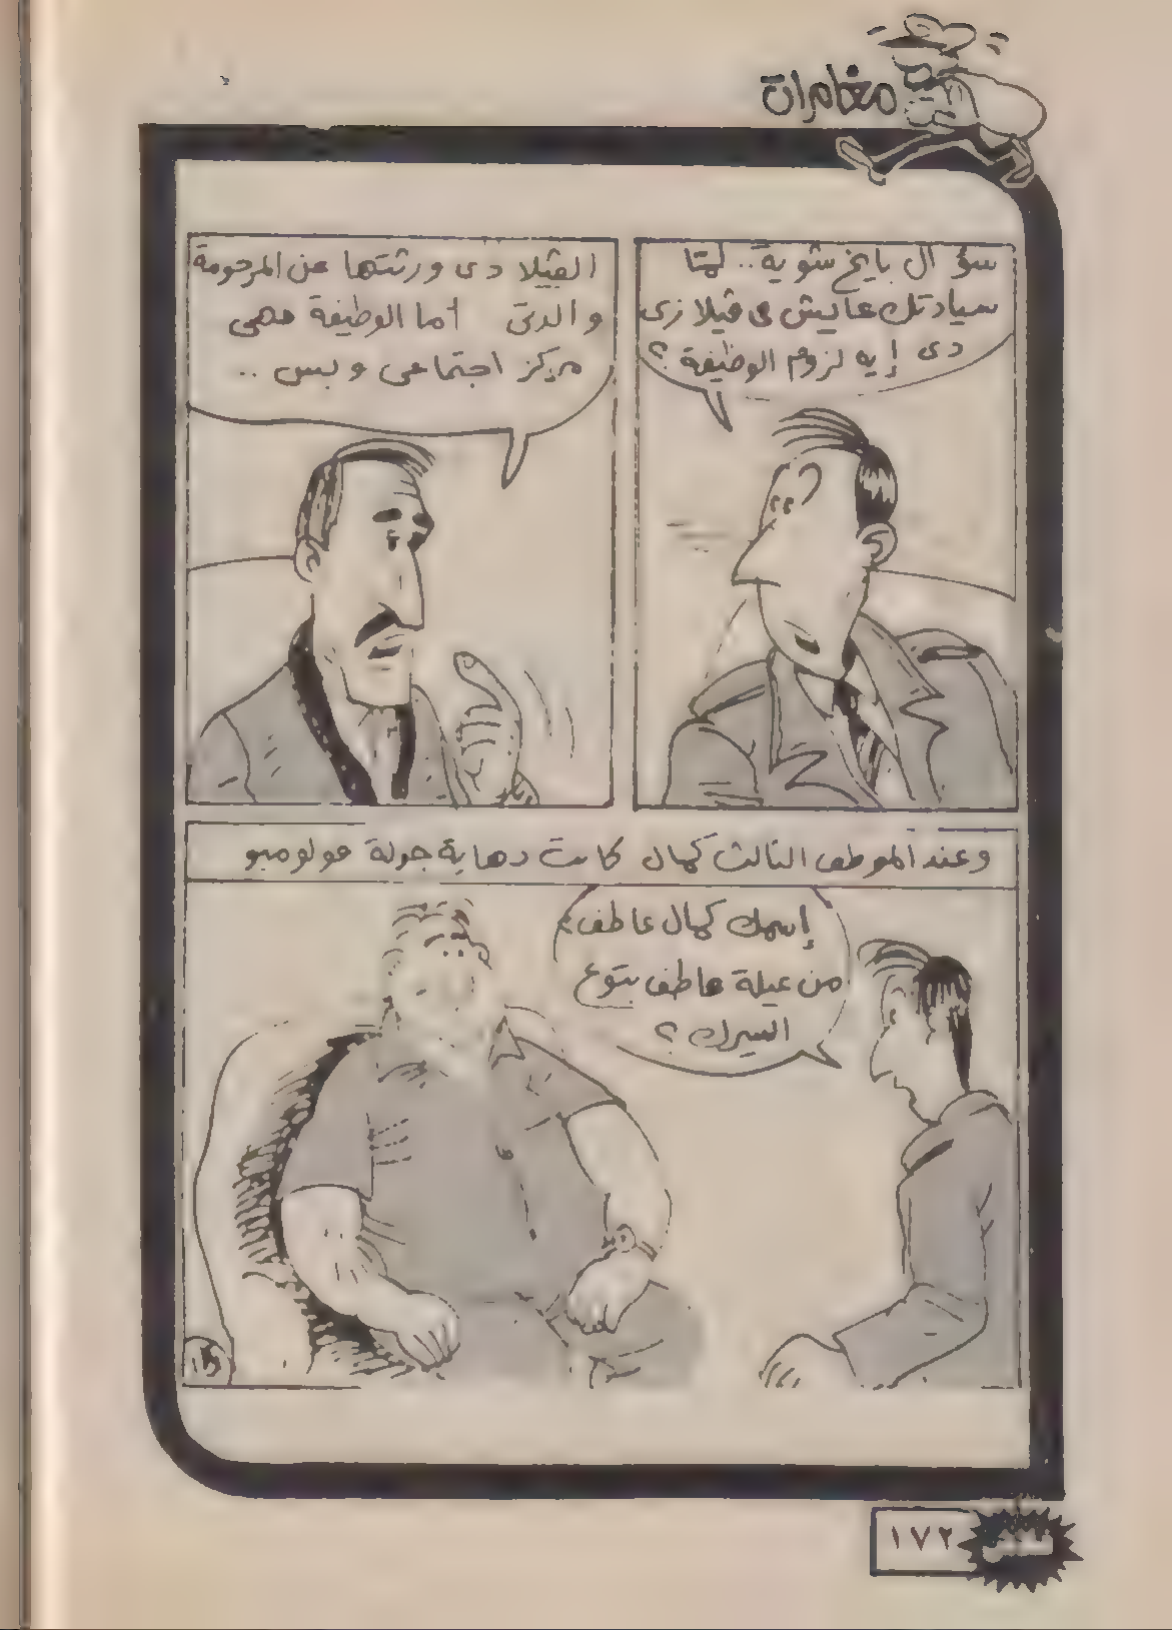 مغامرات
سؤال بايخ شوية.. لمّا
سيادتك عايش فى ڤيلا زى
دى إيه لزوم الوظيفة ؟
الڤيلا دى ورثتها عن المرحومة
والدتى أما الوظيفة فهى
مركز اجتماعى وبس ..
وعند الموظف الثالث كمال كانت نهاية جولة مولومبو
إسمك كمال عاطف
من عيلة عاطف بتوع
السيرك ؟
١٧٢